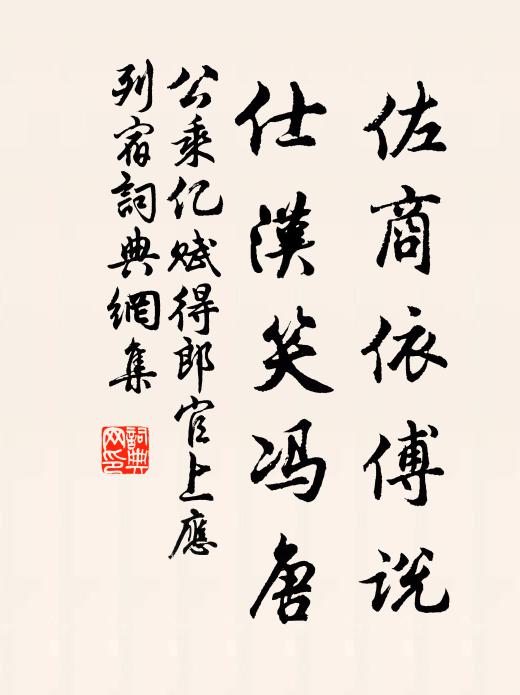 佐商依傅说
仕漢笑冯唐
公乘亿赋得郎官上應
列宿詞典網集
詞典
网印